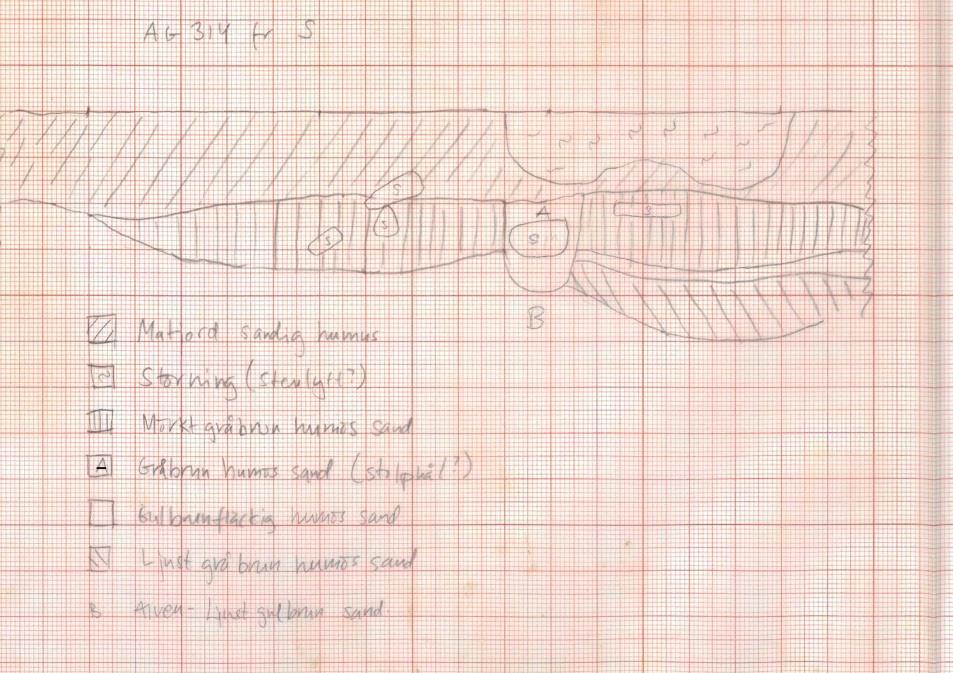 AG 314 fr S
S
S
S
A
S
S
B
Matjord sandig humus
Störning (stenlyft?)
Mörkt gråbrun humös sand
A Gråbrun humös sand (stolphål?)
Gulbrunfläckig humös sand
Ljust gråbrun humös sand
B Alven - Ljust gulbrun sand